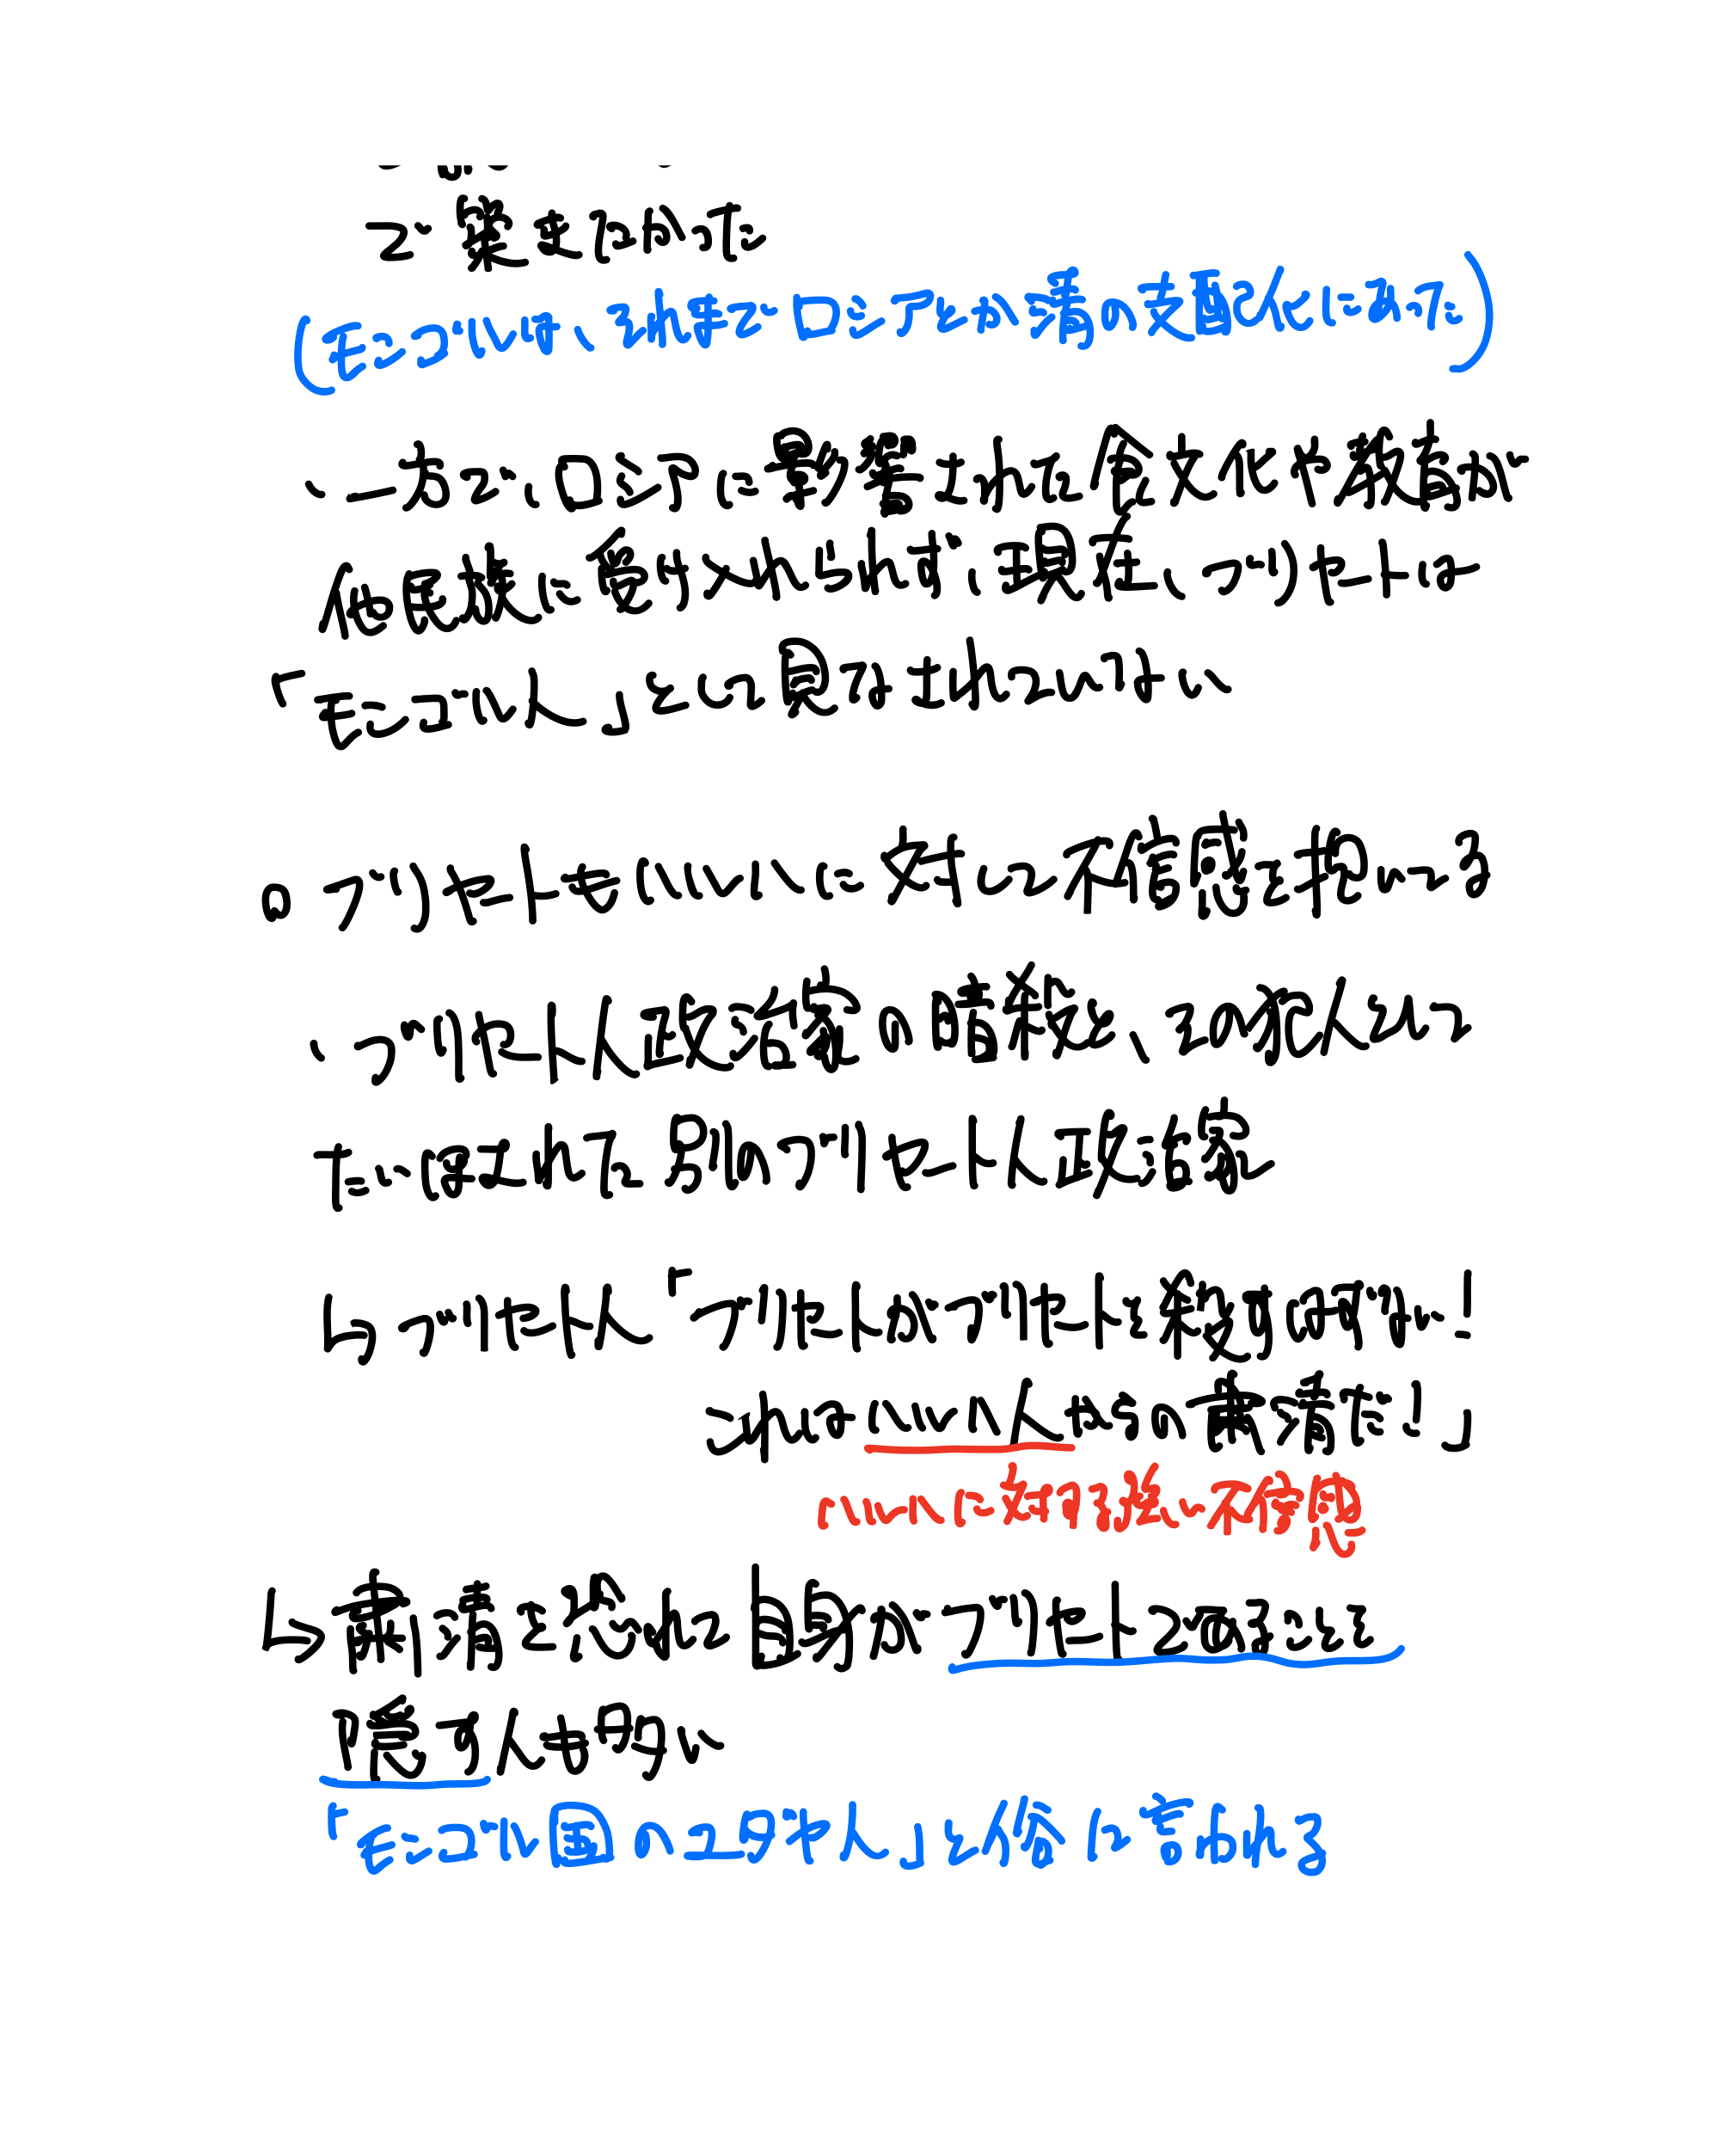 で築き上げた
(モンゴルは、それまでロシアとか清の支配下にあった)
・一方で、ロシアに影響された食文化や教育が
他民族に受け入れられず、現在、ブリヤートは
「モンゴル人」とは見なされていない
。ブリヤートもハルハに対して不信感を抱いてる
・ブリヤート人政治家の暗殺と、その犯人として
たいほされた別のブリヤート人政治家
↳ブリヤート人「ブリヤートがブリヤートを殺すはずない!
これはハルハ人からの粛清だ!」
ハルハに対する強い不信感
↳粛清を恐れ自身がブリヤートであることを
隠す人も多い
「モンゴル国のユダヤ人」と俗に言われる